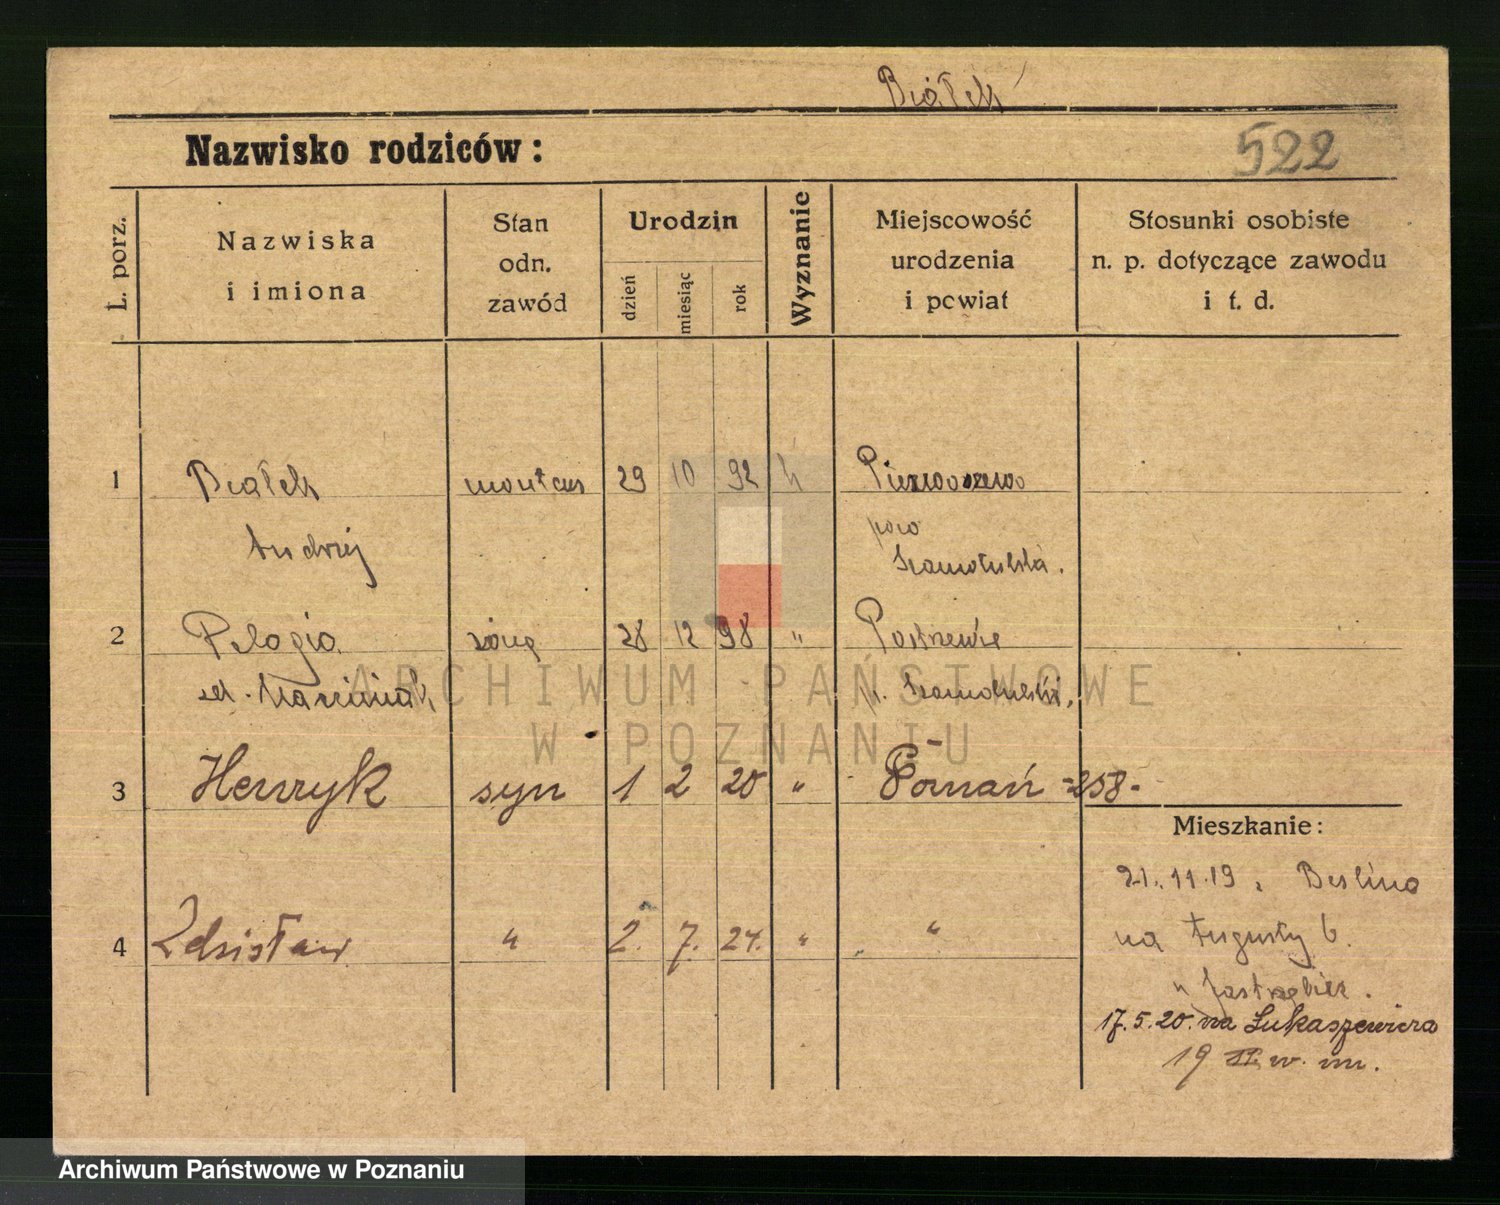 Białek
Nazwisko rodziców:
522
L. porz.
Nazwiska
i imiona
Stan
odn.
zawód
Urodzin
dzień
miesiąc
rok
Wyznanie
Miejscowość
urodzenia
i powiat
Stosunki osobiste
n. p. dotyczące zawodu
i t. d.
1 Białek monter 29 10 92 k
Andrzej pow
Szamotulski.
2 Pelagia żona 28 12 98 "
Marciniak p. Szamotulski.
ARCHIWUM PAŃSTWOWE
W POZNANIU
3 Henryk syn 1 2 20 " Poznań =258-
Mieszkanie:
21.11.19. Berlina
4 Zdzisław " 2. 7. 24. " "
na Augusty 6.
u Jastrzębiek.
17.5.20. na Łukaszewicza
19 II w. m.
Archiwum Państwowe w Poznaniu